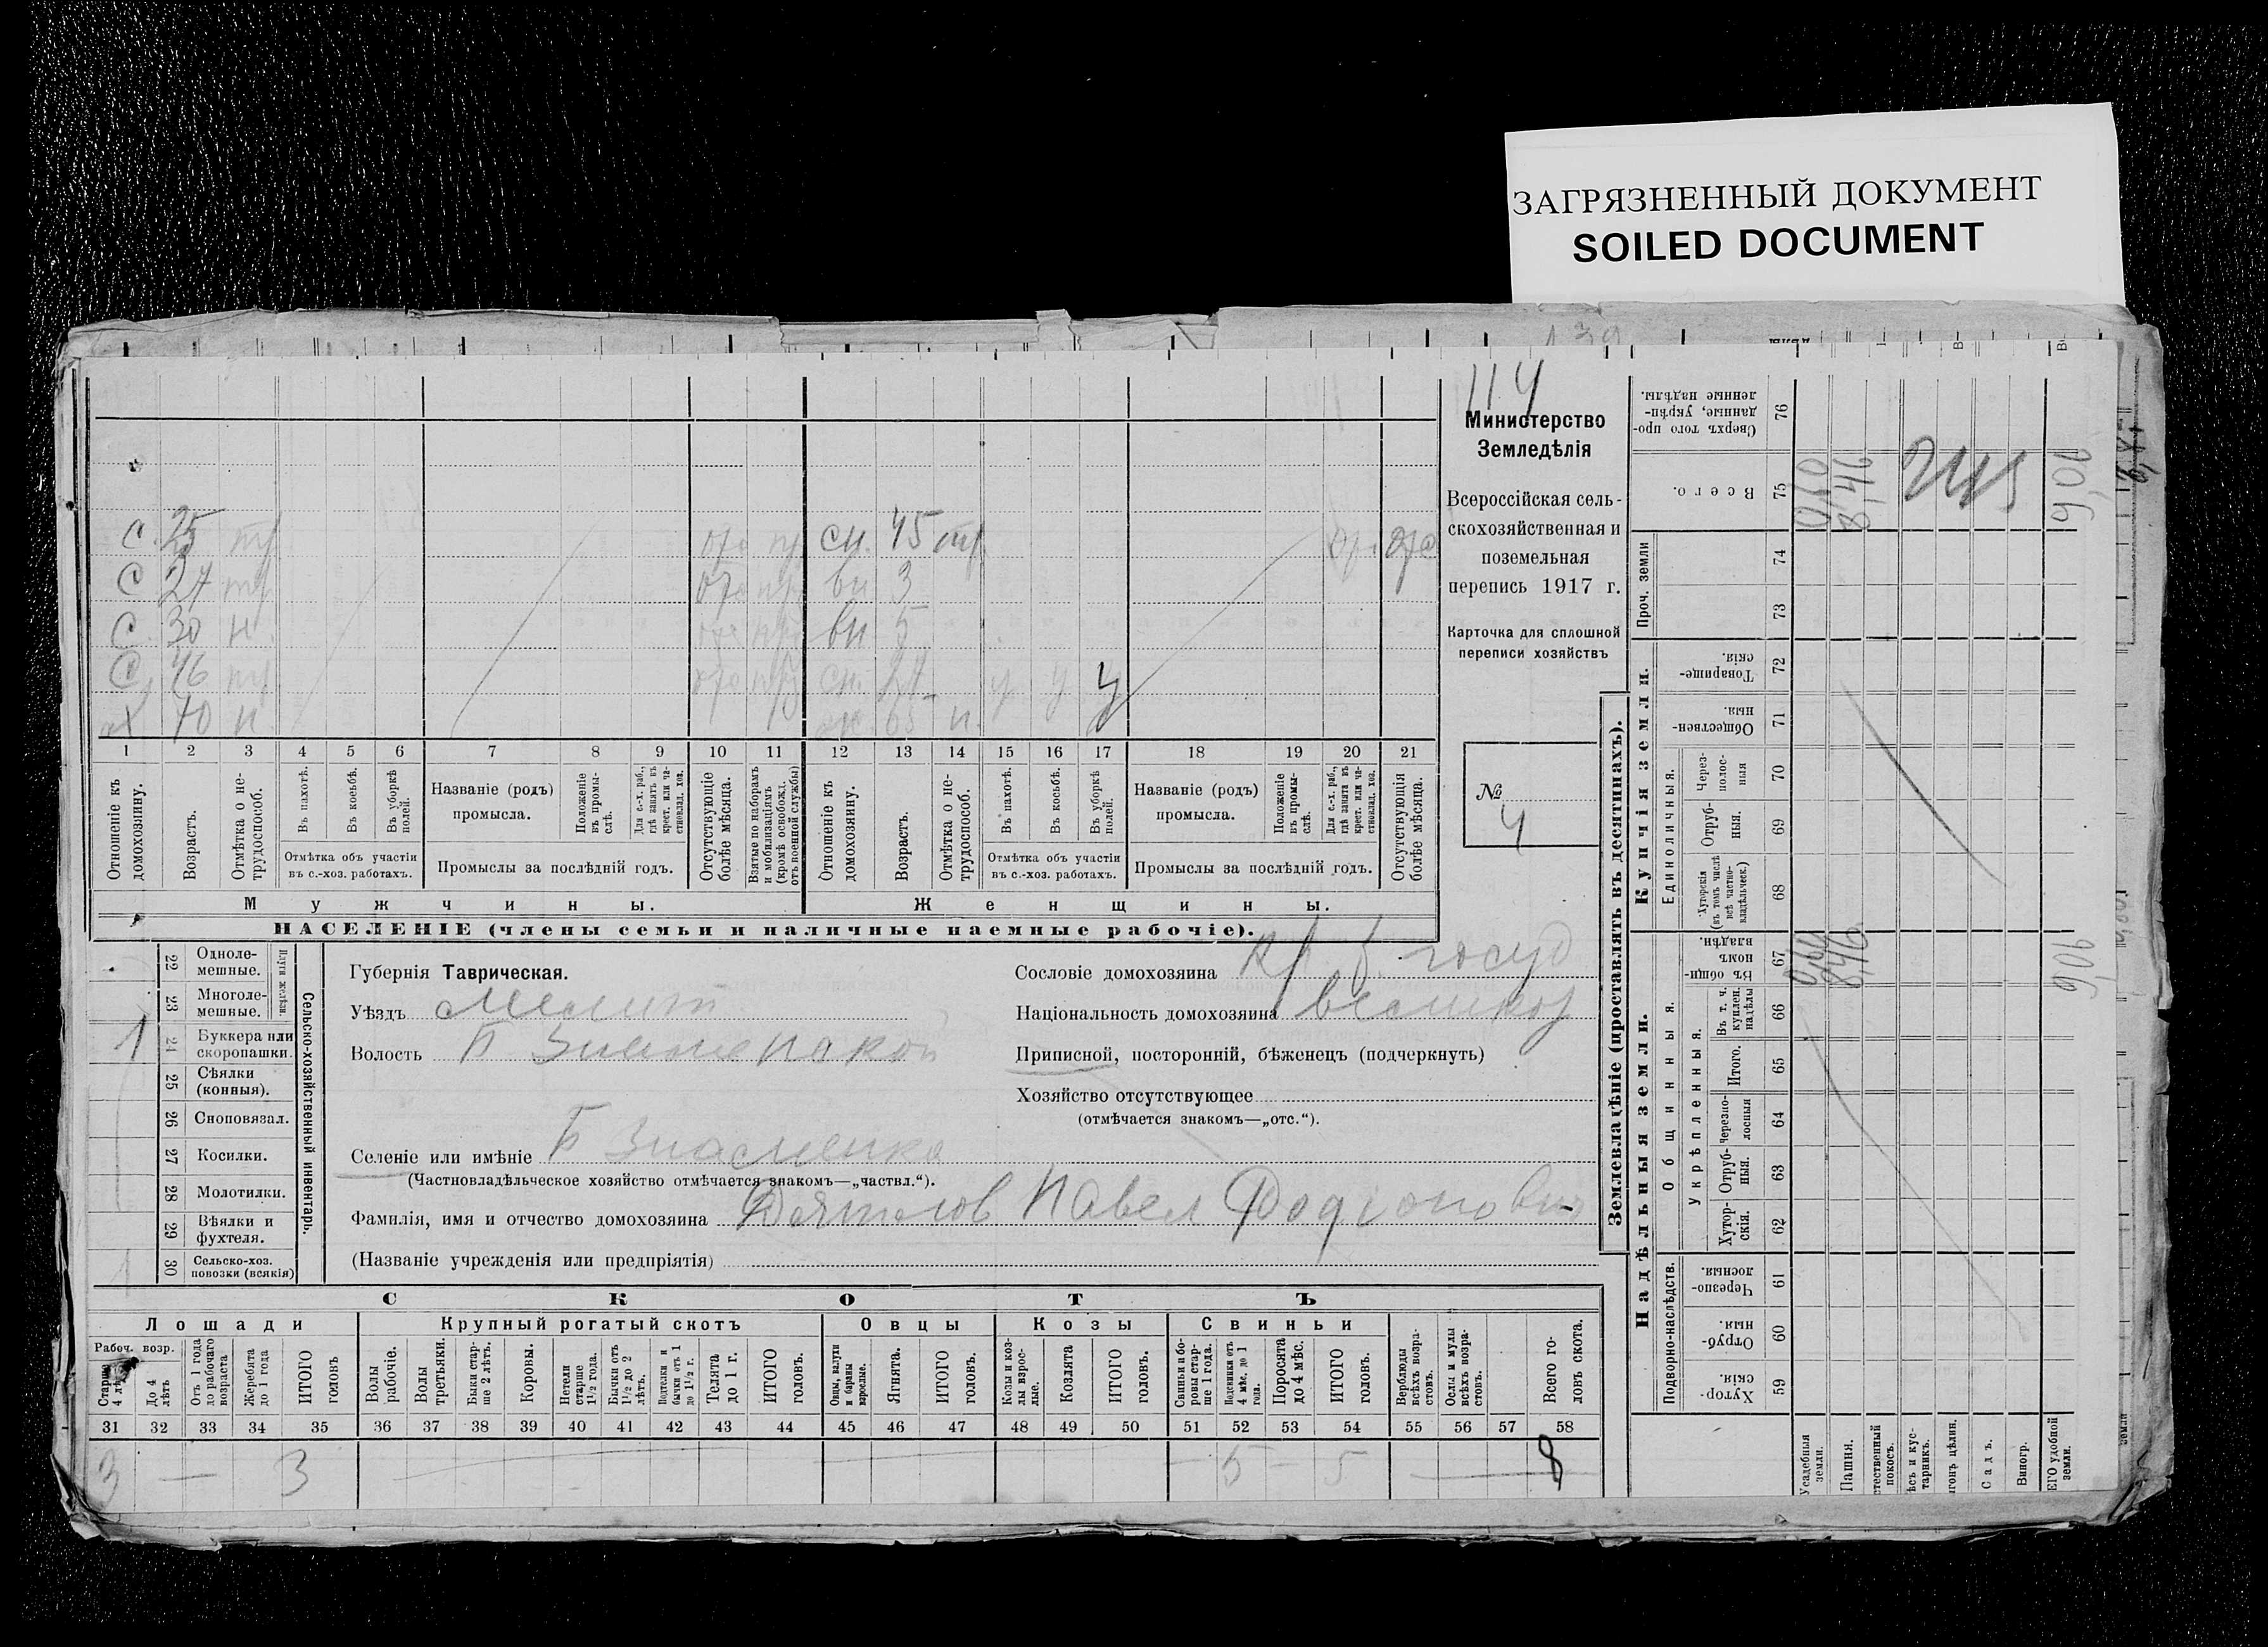 ЗАГРЯЗНЕННЫЙ ДОКУМЕНТ
SOILED DOCUMENT
139
114
Министерство
Земледѣлія
Всероссійская сель-
скохозяйственная и
поземельная
перепись 1917 г.
Карточка для сплошной
переписи хозяйствъ
№
4
С. 25 тр отс пр сн. 45 тр отс
С 27 тр отс пр вн 3
С. 30 н отс пр вн 5
С 46 тр отс пр сн. 27 у у у
70 н 65 н.
1 2 3 4 5 6 7 8 9 10 11 12 13 14 15 16 17 18 19 20 21
Отношеніе къ домохозяину.
Возрастъ.
Отмѣтка о не-трудоспособ.
Въ пахотѣ.
Въ косьбѣ.
Въ уборкѣ полей.
Отмѣтка объ участіи
въ с.-хоз. работахъ.
Названіе (родъ)
промысла.
Положеніе въ промы-слѣ.
Для с.-х. раб., гдѣ занятъ въ крест. или ча-стновлад. хоз.
Промыслы за послѣдній годъ.
Отсутствующіе болѣе мѣсяца.
Взятые по наборамъ и мобилизаціямъ (кромѣ освобожд. отъ военной службы)
Отношеніе къ домохозяину.
Возрастъ.
Отмѣтка о не-трудоспособ.
Въ пахотѣ.
Въ косьбѣ.
Въ уборкѣ полей.
Отмѣтка объ участіи
въ с.-хоз. работахъ.
Названіе (родъ)
промысла.
Положеніе въ промы-слѣ.
Для с.-х. раб., гдѣ занята въ крест. или ча-стновлад. хоз.
Промыслы за послѣдній годъ.
Отсутствующія болѣе мѣсяца.
Мужчины.
Женщины.
НАСЕЛЕНІЕ (члены семьи и наличные наемные рабочіе).
22 Одноле-мешные.
23 Многоле-мешные.
Плуги желѣзн.
1 24 Буккера или скоропашки.
25 Сѣялки (конныя).
26 Сноповязал.
27 Косилки.
28 Молотилки.
29 Вѣялки и фухтеля.
1 30 Сельско-хоз. повозки (всякія)
Сельско-хозяйственный инвентарь.
Губернія Таврическая.
Уѣздъ Мелит
Волость Б Знаменской
Селеніе или имѣніе Б Знаменка
(Частновладѣльческое хозяйство отмѣчается знакомъ—„частвл.“).
Фамилія, имя и отчество домохозяина Дятлов Павел Родіонович
(Названіе учрежденія или предпріятія)
Сословіе домохозяина кр. б. госуд
Національность домохозяина великор
Приписной, посторонній, бѣженецъ (подчеркнуть)
Хозяйство отсутствующее
(отмѣчается знакомъ—„отс.“).
СКОТЪ
Лошади
Крупный рогатый скотъ
Овцы
Козы
Свиньи
Рабоч. возр.
Старше 4 лѣтъ
До 4 лѣтъ
Отъ 1 года до рабочаго возраста
Жеребята до 1 года
ИТОГО головъ
Волы рабочіе.
Волы третьяки.
Быки стар-ше 2 лѣтъ.
Коровы.
Нетели старше 1½ года.
Бычки отъ 1½ до 2 лѣтъ.
Подтелки и бычки отъ 1 до 1½ г.
Телята до 1 г.
ИТОГО головъ.
Овцы, валухи и бараны взрослые.
Ягнята.
ИТОГО головъ.
Козы и коз-лы взрос-лые.
Козлята
ИТОГО головъ.
Свиньи и бо-ровы стар-ше 1 года.
Подсвинки отъ 4 мѣс. до 1 года.
Поросята до 4 мѣс.
ИТОГО головъ.
Верблюды всѣхъ возра-стовъ.
Ослы и мулы всѣхъ возра-стовъ.
Всего го-ловъ скота.
31 32 33 34 35 36 37 38 39 40 41 42 43 44 45 46 47 48 49 50 51 52 53 54 55 56 57 58
3 — 3 5 — 5 8
Землевладѣніе (проставлять въ десятинахъ).
Надѣльныя земли.
Купчія земли.
Проч. земли
Подворно-наслѣдств.
Общинныя.
Укрѣпленныя.
Единоличныя.
Хутор-скія. 59
Отруб-ныя. 60
Черезпо-лосныя. 61
Хутор-скія. 62
Отруб-ныя. 63
Черезпо-лосныя 64
Итого. 65
Въ т. ч. куплен. надѣлы 66
Въ общи-номъ владѣн. 67
Хуторскія (въ томъ числѣ всѣ частно-владѣльческ.) 68
Отруб-ныя. 69
Через-полос-ныя 70
Обществен-ныя. 71
Товарище-скія. 72
73
74
Всего. 75
Сверхъ того про-данные, укрѣп-ленные надѣлы. 76
Усадебныя земли.
Пашня.
Садъ.
Виногр.
ЕГО удобной земли.
8,46
9,06
8,46
245
9,06